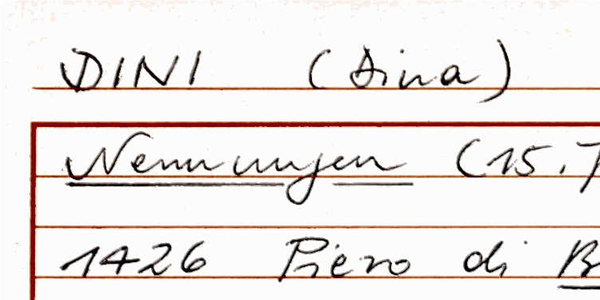 DINI (Dina)
Nennungen (15.
1426 Piero di